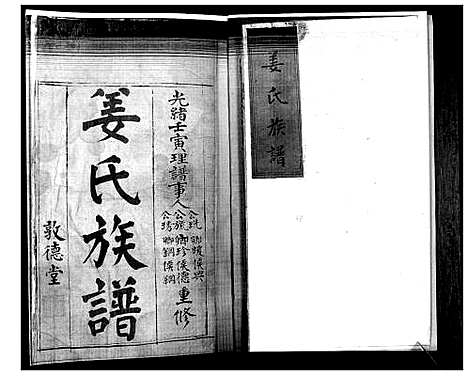 姜氏族譜
光緒壬寅理譜事人
卿珍侯德
重修
姜氏族譜
敦德堂